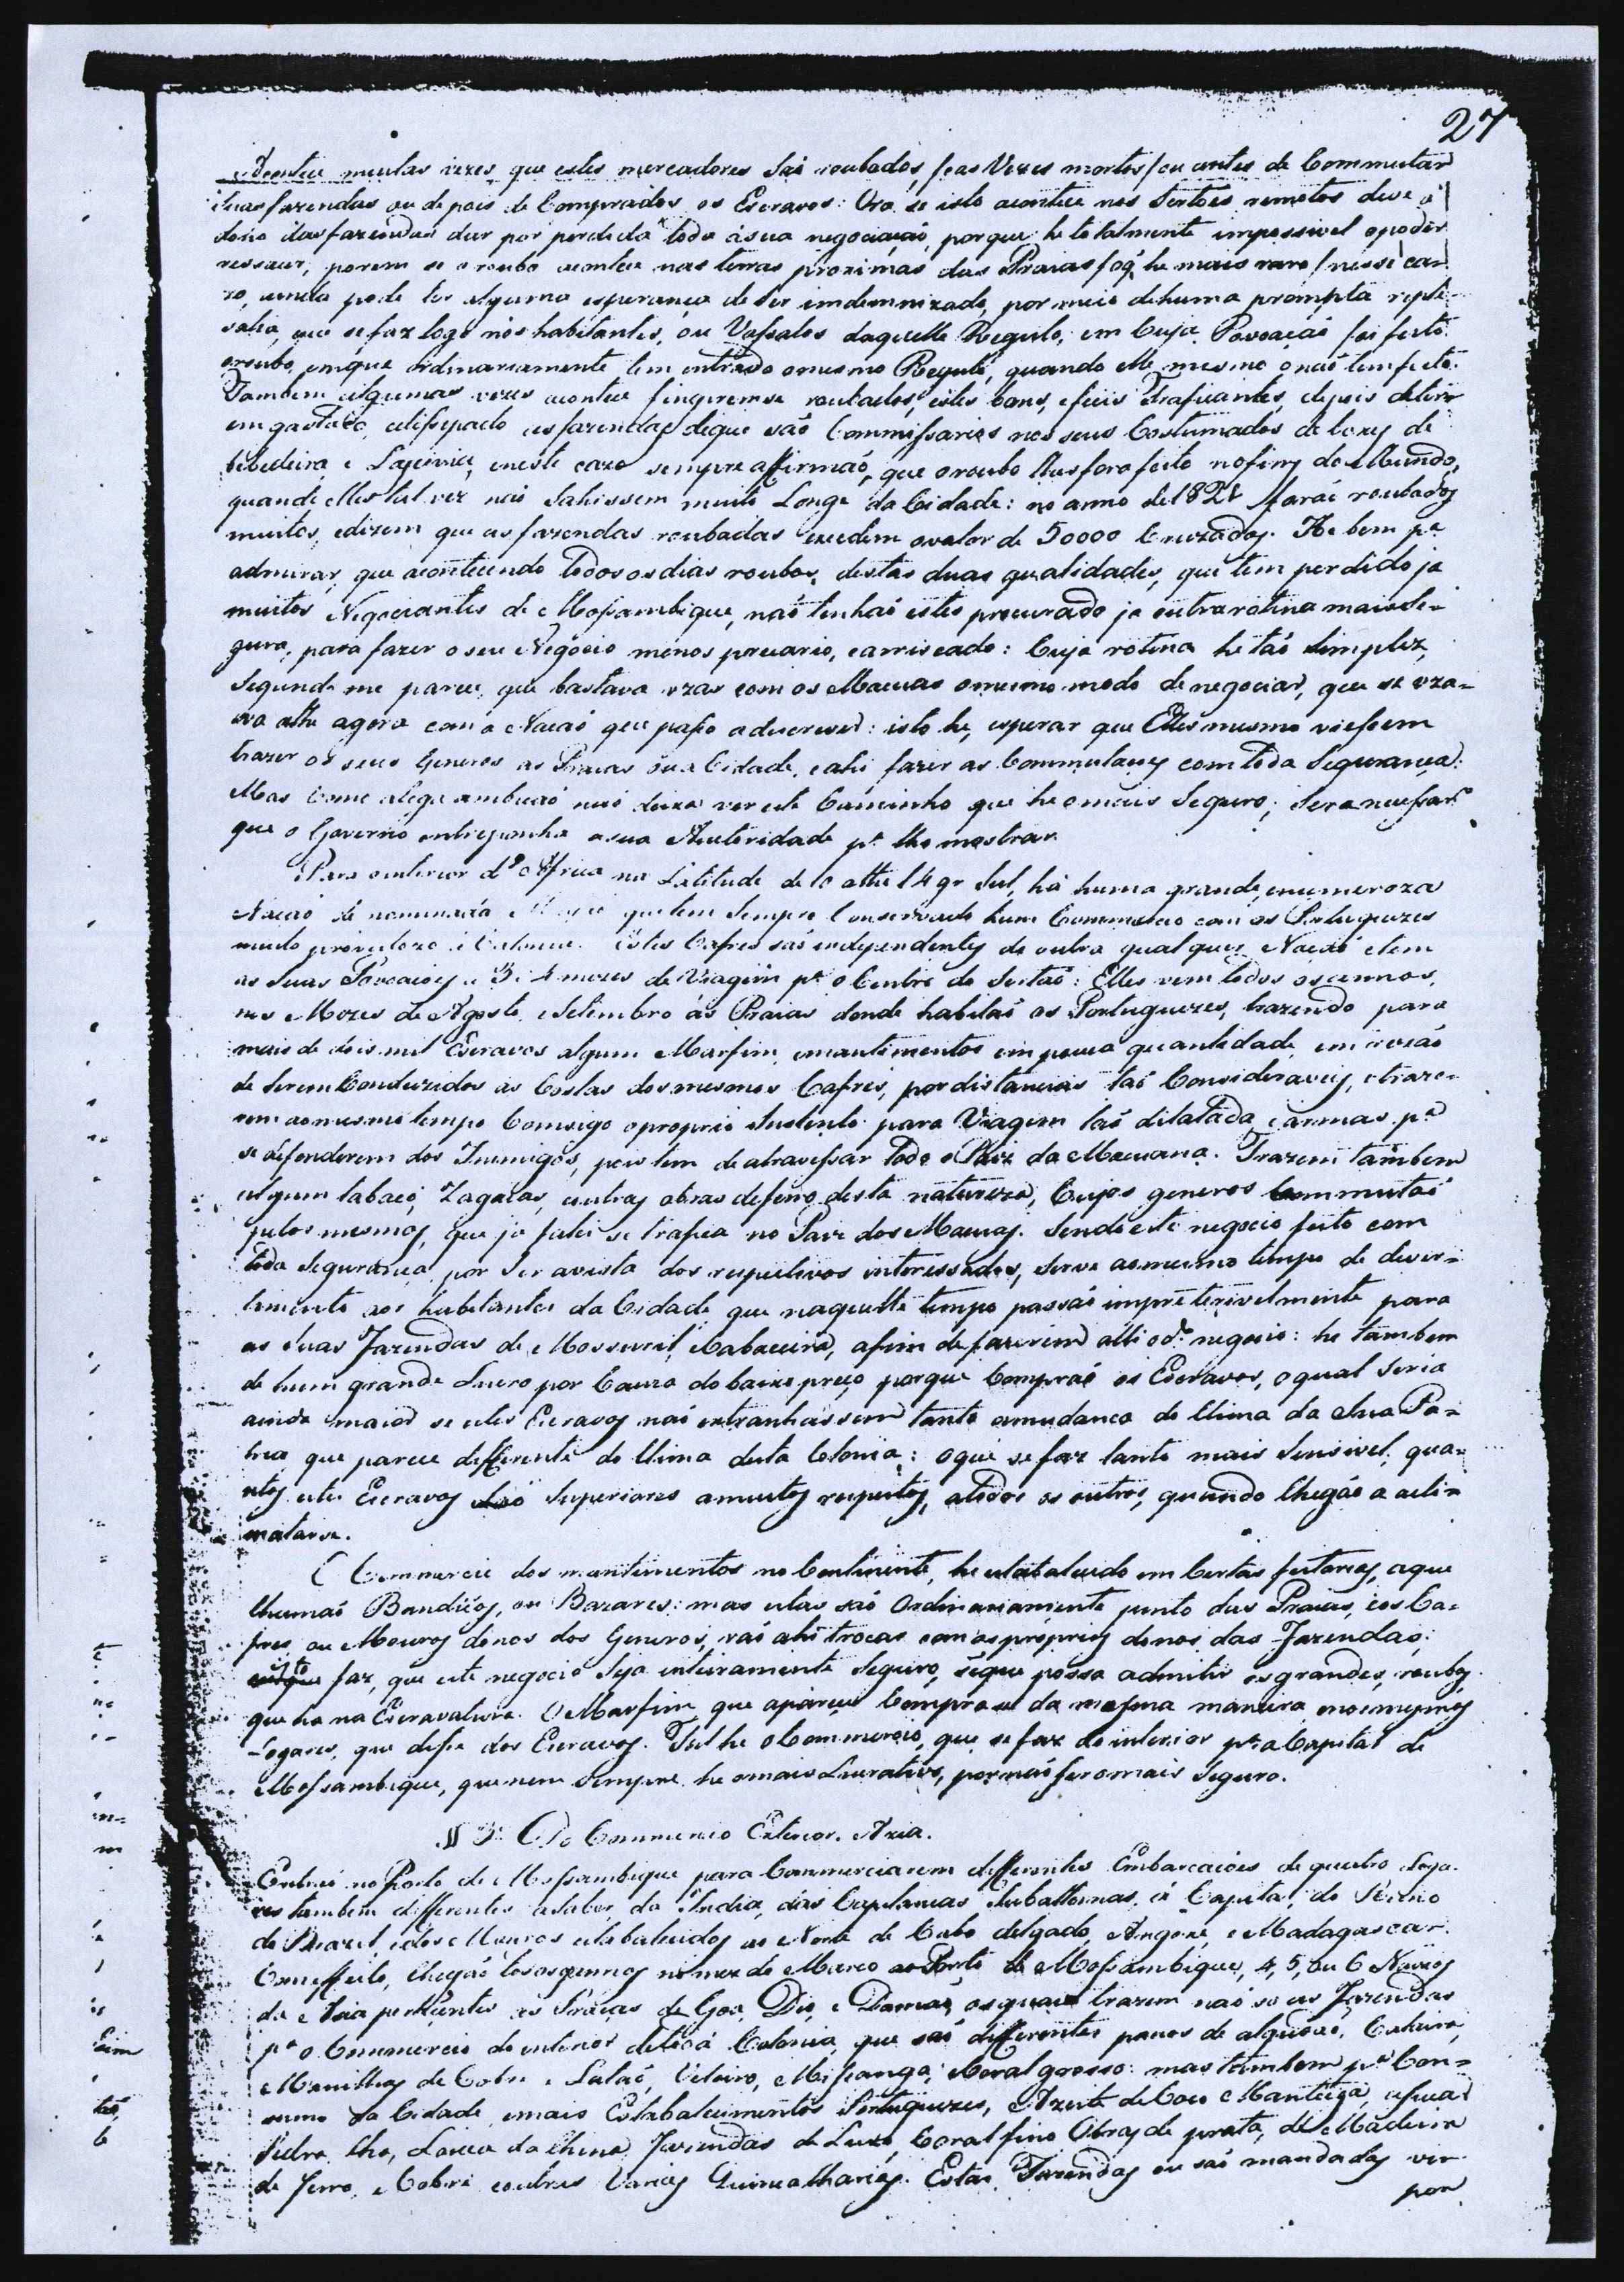 27
Acontece muitas vezes, que estes mercadores saõ roubados, /e as Vezes mortos/ ou antes de Commutar
suas fazendas ou depois de Comprados os Escravos: Ora se isto acontece nos Sertões remotos deve o
dono das fazendas dar por perdida toda ásua negociaçaõ, porque he totalmente impossivel o poder
ressacir; porem se o roubo acontece nas terras proximas das Praias /oq̃ he mais raro/ nesse ca-
zo, ainda pode ter alguma esperança de ser indemnizado, por meio dehuma prompta repre-
salia, que sefaz logo nos habitantes, ou Vassalos daquelle Regulo, em Cuja Povoaçaõ foi feito
oroubo, emque ordinariamente tem entrado omesmo Regulo, quando elle mesmo o naõ temfeito.
Tambem algumas vezes acontece fingiremse roubados, estes bons, efieis Traficantes, depois deterem
emgastado, edissipado asfazendas deque saõ Commissarios nos seus Costumados deboxes de
bebedeira e Lascivia, eneste cazo sempre affirmaõ, que oroubo lhesfora feito nofim do Mundo,
quando elles talvez naõ Sahissem muito Longe da Cidade: no anno de 1821 foraõ roubados
muitos, edizem que as fazendas roubadas excedem ovalor de 50000 Cruzados. He bem p.ª
admirar, que acontecendo todos os dias roubos, destas duas qualidades, que tem perdido ja
muitos Negociantes de Mossambique, naõ tenhaõ estes procurado ja outra rotina mais Se-
gura, para fazer o seu Negocio menos precario, earriscado: Cuja rotina he taõ simplez,
segundo me parece, que bastava uzar com os Macuas omesmo modo de negociar, que se uza-
va athe agora com a Naçaõ que passo a descrever: isto he, esperar que Elles mesmo viessem
trazer os seus Generos as Praias ou a Cidade, eahi fazer as Commutações com toda Segurança:
Mas Como a lega ambiçaõ naõ deixa ver este Caminho que he o mais Seguro; sera necessar.º
que o Governo entreponha asua Autoridade p.ª lho mostrar.
Para ointerior d'Africa na Latitude de 10 athe 14 gr Sul, há huma grande, enumeroza
Naçaõ de nominada que tem sempre Conservado hum Commercio com os Portuguezes
muito proveitozo á Colonia. Estes Cafres saõ independentes de outra qualquer Naçaõ etem
as suas Povoações a 3 e 4 mezes de Viagem p.ª o Centro do Sertaõ: Elles vem todos os annos,
nos Mezes de Agosto, e Setembro ás Praias donde habitaõ os Portuguezes, trazendo para
mais de dois mil Escravos algum Marfim, emantimentos em pouca quantidade em rezaõ
de Serem Conduzidos ás Costas dos mesmos Cafres, por distancias taõ Consideraveis, etraze-
rem aomesmo tempo Comsigo o proprio sustento para Viagem taõ dilatada, e armas p.ª
se defenderem dos Inimigos, pois tem de atravessar todo o Paiz da Macuana. Trazem tambem
algum tabaco, Zagaias, eoutras obras deferro desta natureza, Cujos generos Commutaõ
pelos mesmos, que ja falei se trafica no Paiz dos Macuas. Sendo este negocio feito com
toda Segurança, por Ser avista dos respectivos interessados, serve aomesmo tempo de diver-
timento aos habitantes da Cidade que naquelle tempo passaõ impreterivelmente para
as suas Fazendas de Mossuril, e Cabaceira, afim de fazerem alli od.º negocio: he tambem
de hum grande Lucro por Cauza do baixo preço porque Compraõ os Escravos, oqual seria
ainda maior se estes Escravos naõ extranhassem tanto amudança do Clima da sua Pa-
tria que parece differente do Clima desta Colonia: oque se faz tanto mais Sensivel, qua-
ntos estes Escravos saõ Superiores amuitos respeitos, atodos os outros, quando Chegaõ a acli-
matarse.
O Commercio dos mantimentos no Continente, he estabalecido em Certas feitorias, aque
Chamaõ Bandicos, ou Bazares: mas estas saõ Ordinariamente junto das Praias, eos Ca-
fres ou Mouros donos dos Generos, vaõ ahi trocar com os proprios donos das Fazendas:
faz, que este negocio seja inteiramente Seguro, sẽque possa admitir os grandes roubos
que ha na Escravatura. O Marfim que aparece Comprase da mesma maneira, enosmesmos
Logares, que disse dos Escravos. Tal he o Commercio, que se faz do interior p.ª a Capital de
Mossambique, que nem sempre he omais Lucrativo, por naõ ser omais seguro.
§ 3.º Do Commercio Exterior. Azia.
Entraõ no Porto de Mossambique para Commerciarem differentes Embarcações de quatro Loga-
res tambem differentes a saber, da India, das Capitanias Subalternas, á Capital, do Reino
do Brazil, edos Mouros estabalecidos ao Norte de Cabo delgado, Angoxe, e Madagascar.
Comeffeito, Chegaõ todos os annos no mez de Março ao Porto de Mossambique, 4, 5, ou 6 Navios
da Azia pertencentes ás Praças de Goa, Dio, e Damaõ, osquaes trazem naõ so as Fazendas
p.ª o Commercio do interior detoda Colonia, que saõ differentes panos de algudaõ,
Manilhas de Cobre e Lataõ, Velorio, Missanga, e Coral grosso: mas tambem p.ª Con-
sumo da Cidade, emais Estabalecimentos Portuguezes, Azeite de Coco e Manteiga, assucar
Pedra, Cha, Louca da China, Fazendas de Luxo, Coral fino Obras de prata, de Madeira
de ferro, e Cobre, eoutras Varias Quinculharias. Estas Fazendas ou saõ mandadas vir
por